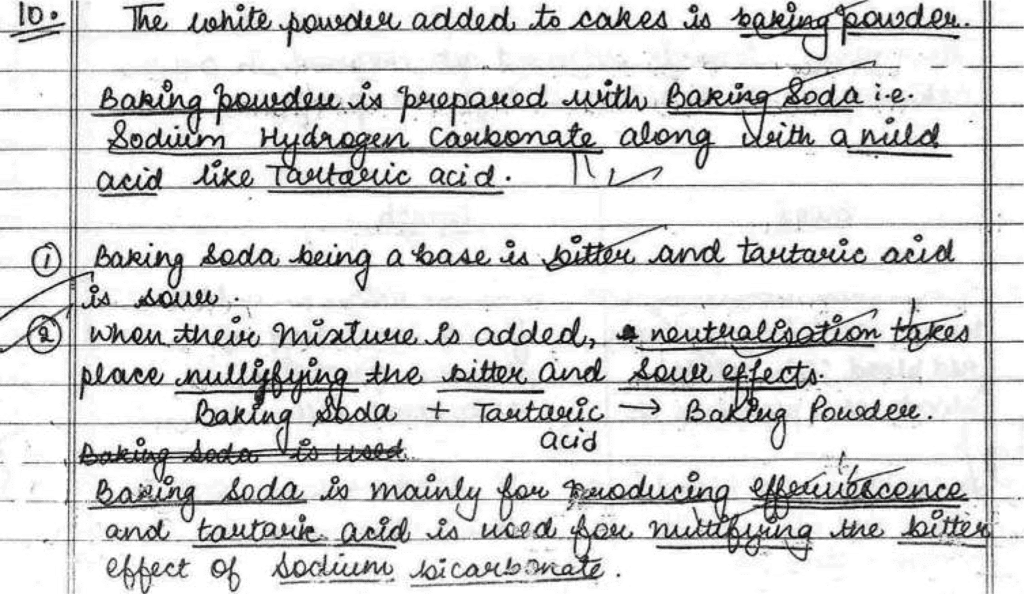 10. The white powder added to cakes is baking powder.
Baking powder is prepared with Baking Soda i.e.
Sodium Hydrogen Carbonate along with a mild
acid like Tartaric acid.
① Baking Soda being a base is bitter and tartaric acid
is sour.
② When their mixture is added, neutralisation takes
place nullyfying the bitter and sour effects.
Baking Soda + Tartaric → Baking Powder.
acid
Baking Soda is used
Baking Soda is mainly for producing effervescence
and tartaric acid is used for nullifying the bitter
effect of sodium bicarbonate.